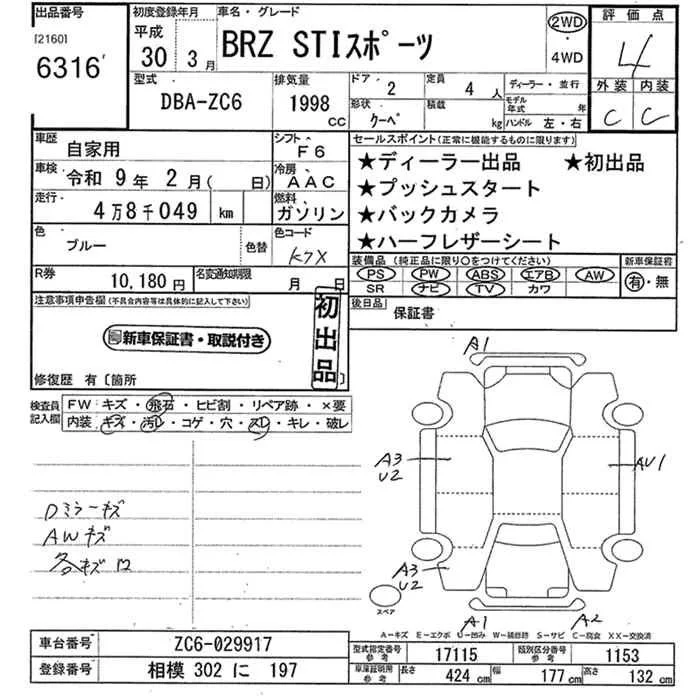 出品番号
[2160]
6316
初度登録年月
平成
30年 3月
車名・グレード
BRZ STIスポーツ
2WD
・
4WD
評価点
4
外装 内装
C C
型式
DBA-ZC6
排気量
1998
CC
ドア 2
定員 4 人
ディーラー・並行
形状 クーペ
積載 kg
モデル年式 年
ハンドル 左・右
車歴 自家用
シフト F6
車検 令和 9年 2月( 日)
冷房 AAC
走行 4万8千049 km
燃料 ガソリン
色 ブルー
色替
色コード K7X
R券 10,180円
名変通知期限 月 日
セールスポイント(正常に機能するものに限ります)
★ディーラー出品 ★初出品
★プッシュスタート
★バックカメラ
★ハーフレザーシート
装備品 (純正品に限り○をつけてください)
新車保証書
PS PW ABS エアB AW
有・無
SR ナビ TV カワ
後日品 保証書
注意事項申告欄(不具合内容等は具体的に記入して下さい)
新車保証書・取説付き
初出品
修復歴 有〔箇所
検査員記入欄
FW キズ・飛石・ヒビ割・リペア跡・×要
内装 キズ・汚レ・コゲ・穴・スレ・キレ・破レ
Dミラーキズ
AWキズ
各キズ凹
A1
A3
U2
AU1
A3
U2
スペア
A1
A2
A-キズ E-エクボ U-凹み W-補修跡 S-サビ C-腐食 XX-交換済
車台番号 ZC6-029917
登録番号 相模 302 に 197
型式指定番号 参考 17115
類別区分番号 参考 1153
車庫証明用 参考 長さ 424 cm 幅 177 cm 高さ 132 cm